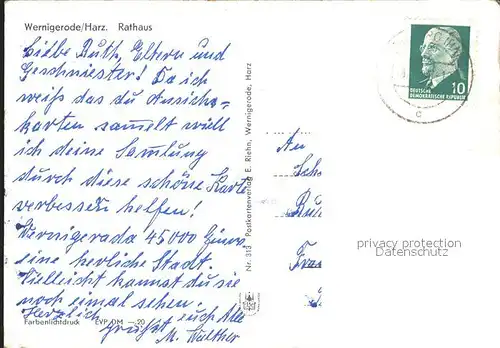 Wernigerode/Harz. Rathaus
Liebe Ruth, Eltern und
Geschwiester! Da ich
weiß das du Ansichs=
karten samelt will
ich deine Samlung
durch diese schöne Karte
verbessern helfen!
Wernigerada 45000 Einw.
eine herliche Stadt.
Vielleicht kannst du sie
noch einmal sehen.
Herzlich euch Alle
grüßt
M. Walther
Farbenlichtdruck EVP DM —20
Nr. 313 Postkartenverlag E. Riehn, Wernigerode, Harz
DEUTSCHE
DEMOKRATISCHE REPUBLIK
10
c
An
privacy protection
Datenschutz